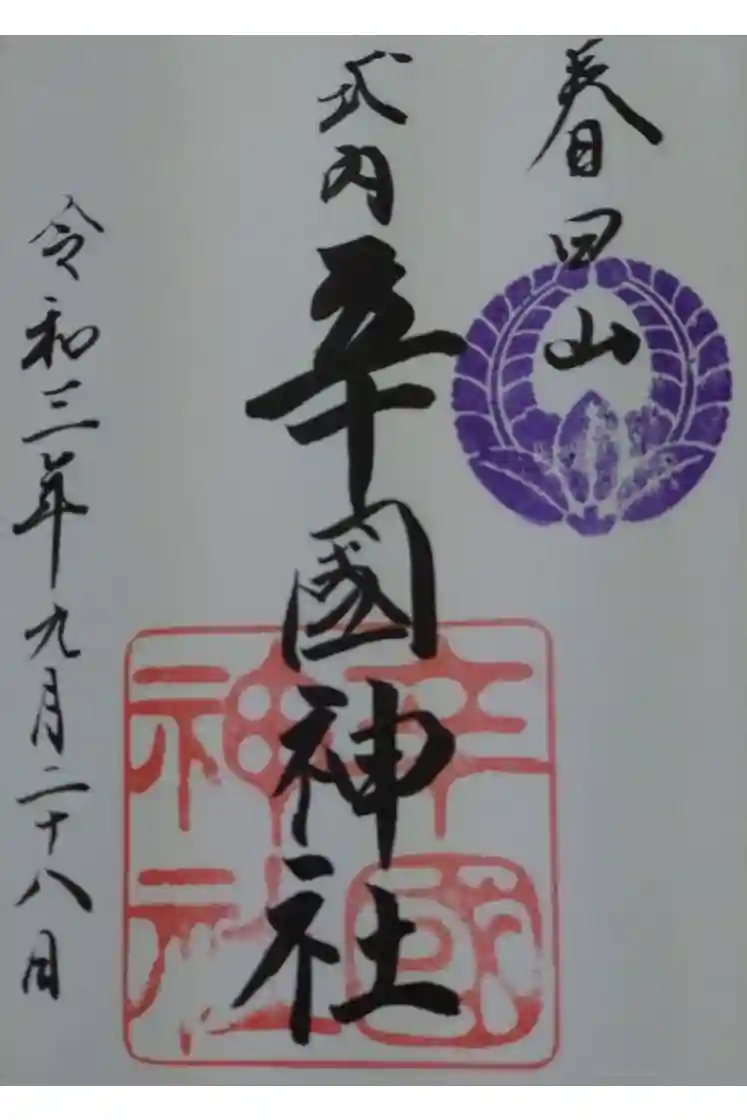 春日山
式内
辛國神社
令和三年九月二十八日
辛國神社